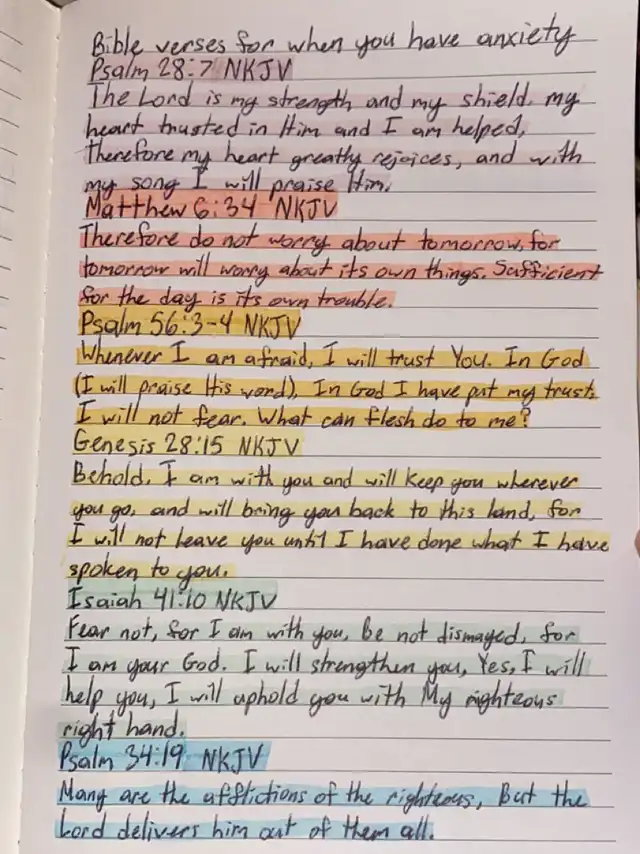 Bible verses for when you have anxiety
Psalm 28:7 NKJV
The Lord is my strength and my shield, my
heart trusted in Him and I am helped,
therefore my heart greatly rejoices, and with
my song I will praise Him.
Matthew 6:34 NKJV
Therefore do not worry about tomorrow, for
tomorrow will worry about its own things. Sufficient
for the day is its own trouble.
Psalm 56:3-4 NKJV
Whenever I am afraid, I will trust You. In God
(I will praise His word), In God I have put my trust.
I will not fear. What can flesh do to me?
Genesis 28:15 NKJV
Behold, I am with you and will keep you wherever
you go, and will bring you back to this land, for
I will not leave you until I have done what I have
spoken to you.
Isaiah 41:10 NKJV
Fear not, for I am with you, Be not dismayed, for
I am your God. I will strengthen you, Yes, I will
help you, I will uphold you with My righteous
right hand.
Psalm 34:19 NKJV
Many are the afflictions of the righteous, But the
Lord delivers him out of them all.